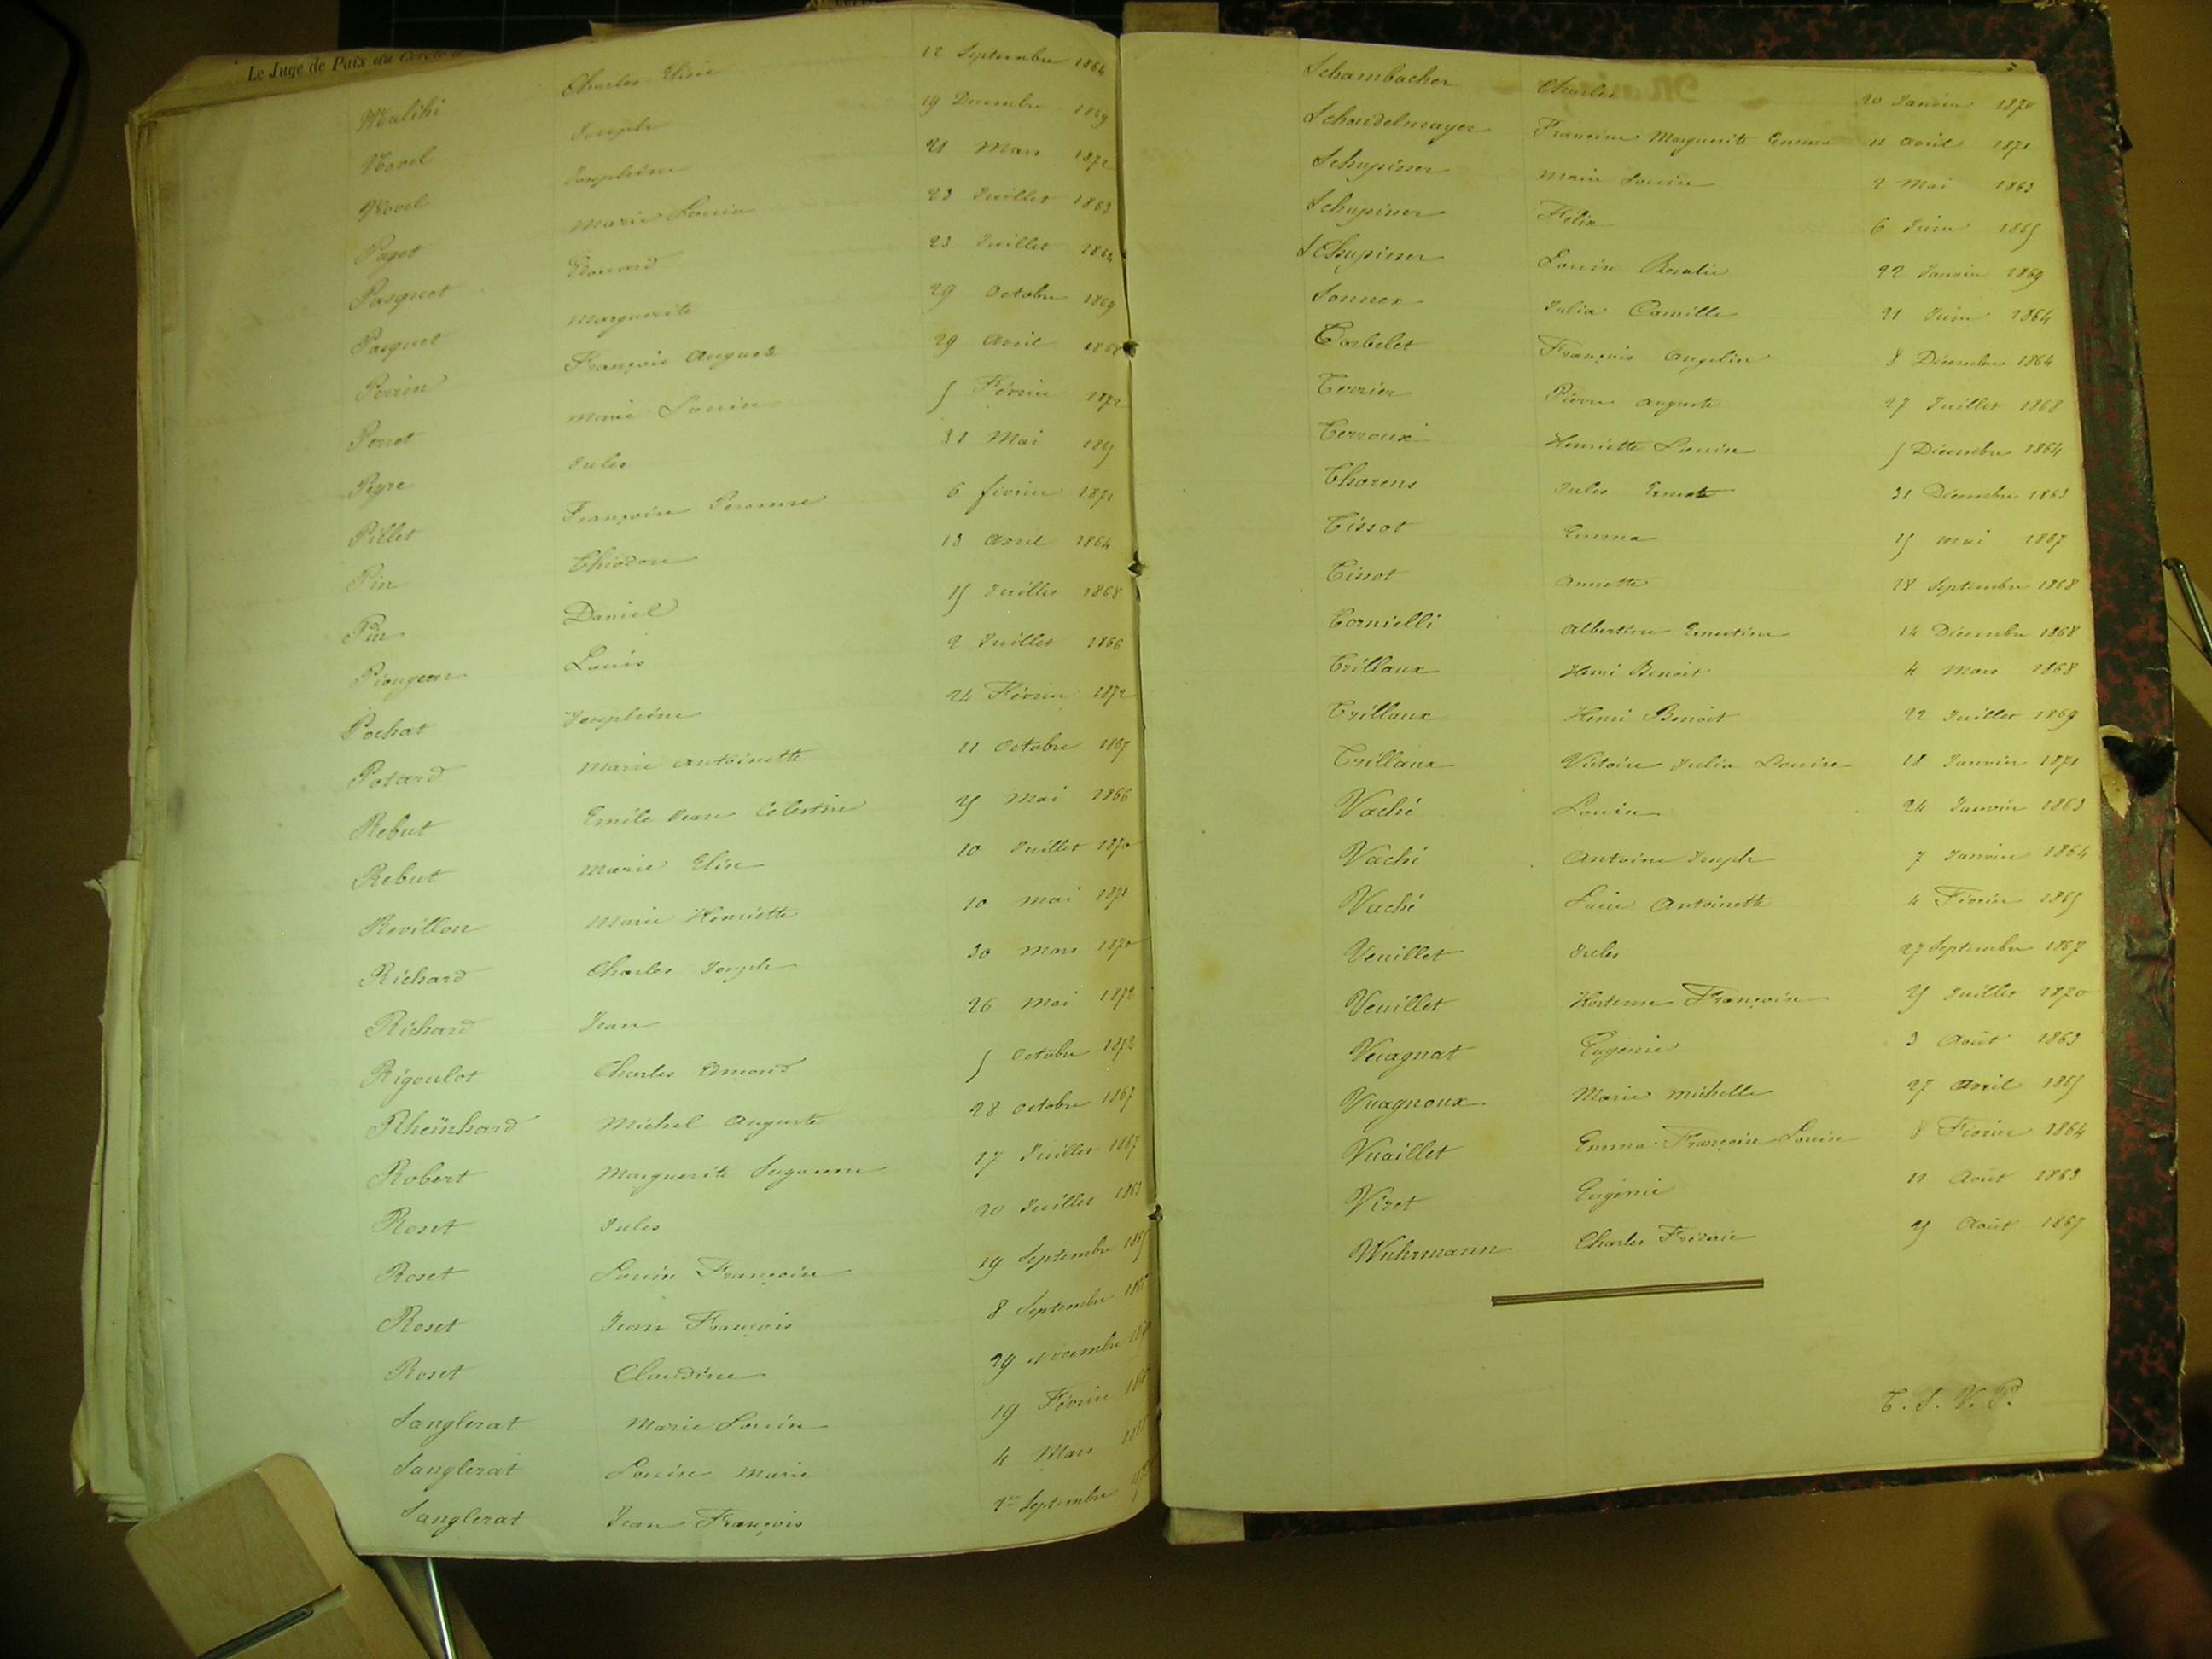 Le Juge de Paix du
Mulihi Charles Elisée 12 Septembre 1864
Novel Joseph 19 Décembre 1869
Novel Joséphine 21 Mars 1872
Paget Marie Louise 23 Juillet 1863
Pasquet Edouard 23 Juillet 1864
Pasquet Marguerite 29 Octobre 1869
Perrin François Auguste 29 Avril
Perret Marie Louise 5 Février 1872
Peyre Jules 31 Mai
Pillet Françoise Peronne 6 février 1871
Pin Théodore 13 Avril 1864
Pin Daniel 15 Juillet 1868
Piongeon Louis 2 Juillet 1866
Pochat Joséphine 24 Février 1872
Potard Marie Antoinette 11 Octobre 1867
Rebut Emile Jean Célestin 25 Mai 1866
Rebut Marie Elise 10 Juillet 1870
Revillon Marie Henriette 10 Mai 1871
Richard Charles Joseph 30 Mars 1870
Richard Jean 26 Mai 1872
Rigoulot Charles Edmond 5 Octobre 1872
Rheinhard Michel Auguste 28 Octobre 1867
Robert Marguerite Suzanne 17 Juillet 1867
Roset Jules 20 Juillet 1863
Roset Louise Françoise 19 Septembre
Roset Jean François 8 Septembre
Roset Claudine 29 Novembre
Sanglerat Marie Louise 19 Février
Sanglerat Louise Marie 4 Mars
Sanglerat Jean François 1er Septembre
Schambacher Charles 20 Janvier 1870
Schondelmayer Francine Marguerite Emma 11 Avril 1871
Schupiner Marie Louise 2 Mai 1863
Schupiner Félix 6 Juin 1865
Schupiner Louise Rosalie 22 Janvier 1869
Sonnex Julia Camille 21 Juin 1864
Corbelet François Angelin 8 Décembre 1864
Terrier Pierre Auguste 27 Juillet 1868
Terroux Henriette Louise 5 Décembre 1864
Thorens Jules Ernest 31 Décembre 1863
Tissot Emma 15 Mai 1867
Tissot Annette 18 Septembre 1868
Tornielli Albertine Ernestine 14 Décembre 1868
Trillaux Henri Benoit 4 Mars 1868
Trillaux Henri Benoit 22 Juillet 1869
Trillaux Victoire Julie Louise 18 Janvier 1871
Vaché Louise 24 Janvier 1863
Vaché Antoine Joseph 7 Janvier 1864
Vaché Lucie Antoinette 4 Février 1865
Veuillet Jules 27 Septembre 1867
Veuillet Hortense Françoise 25 Juillet 1870
Vuagnat Eugénie 3 Août 1863
Vuagnoux Marie Michelle 27 Avril 1865
Vuaillet Emma Françoise Louise 8 Février 1864
Viret Eugénie 11 Août 1863
Wuhrmann Charles Fréderic 25 Août 1867
T. S. V. P.